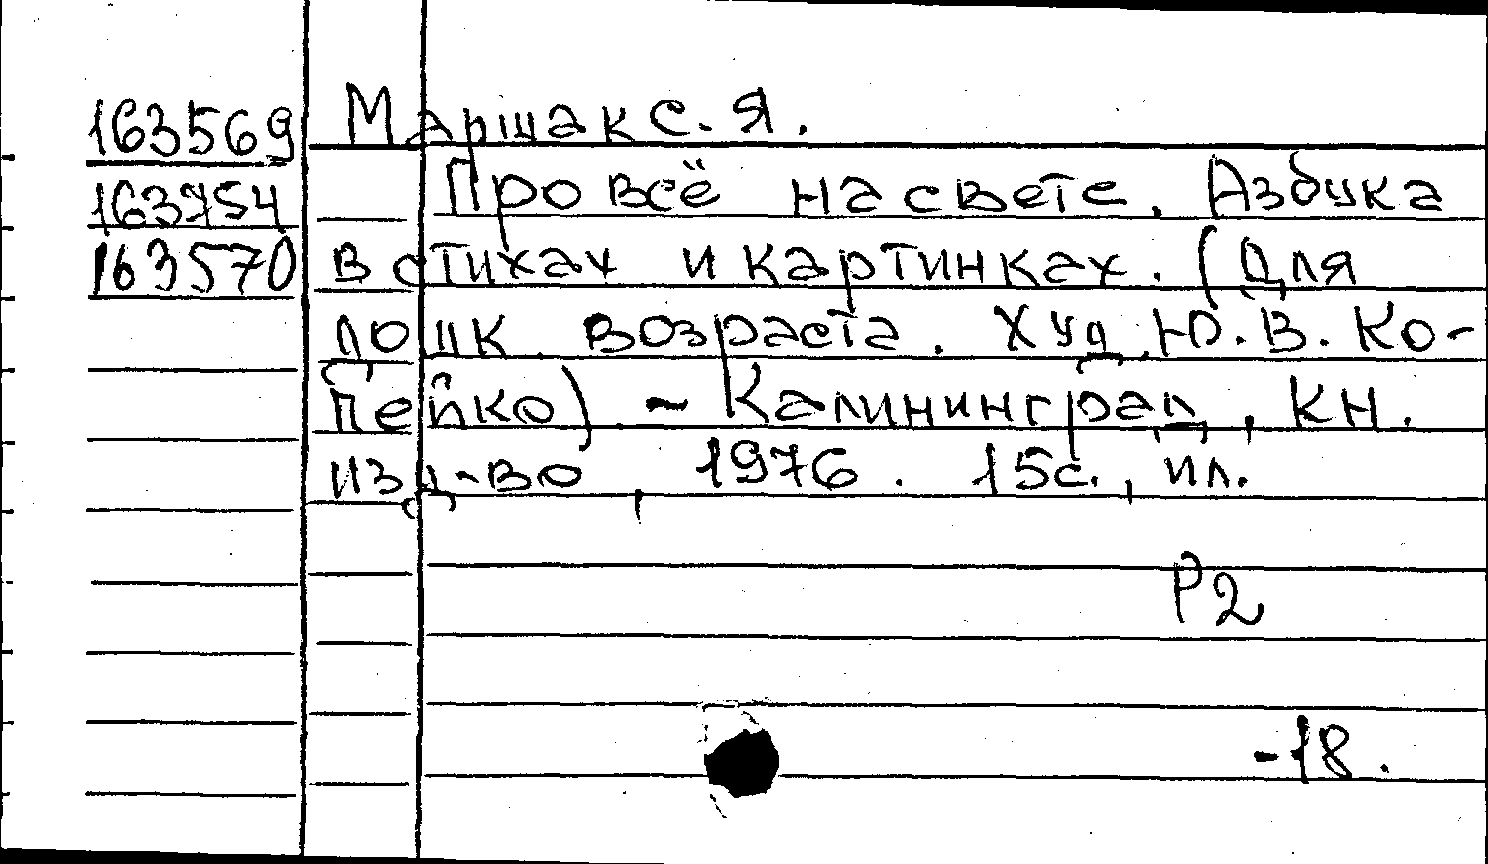 163569 Маршак С. Я.
163754 Про всё на свете. Азбука
163570 в стихах и картинках. (Для
дошк. возраста. Худ. Ю. В. Ко-
пейко). - Калининград, Кн.
изд-во, 1976. 15с., ил.
Р2
-18.